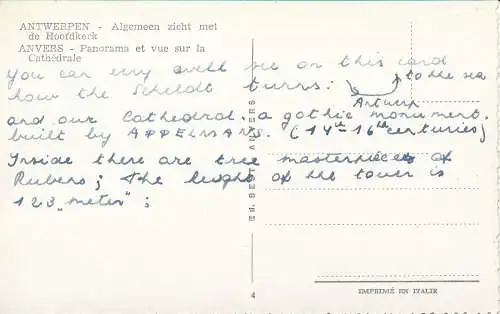 ANTWERPEN - Algemeen zicht met
de Hoofdkerk
ANVERS - Panorama et vue sur la
Cathédrale
you can very well see on this card
how the Scheldt turns:
to the sea
Antwerp
and our Cathedral. a gothic monument.
built by APPELMANS. (14th-16th centuries)
Inside there are tree masterpieces of
Rubens; the height of the tower is
123 „meter";
Ed. ANVERS
4
IMPRIMÉ EN ITALIE